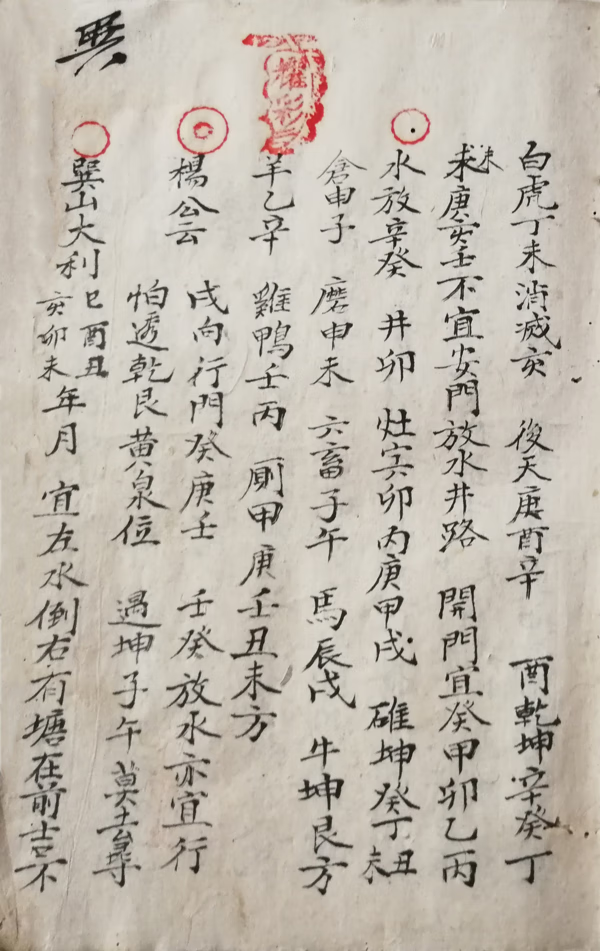 巽
白虎丁未消滅亥 後天庚酉辛 酉乾坤辛癸丁
未庚亥壬不宜安門放水井路 開門宜癸甲卯乙丙
水放辛癸 井卯 灶寅卯丙庚甲戌 碓坤癸丁丑未
倉申子 磨申未 六畜子午 馬辰戌 牛坤艮方
羊乙辛 雞鴨壬丙 厠甲庚壬丑未方
楊公云 戌向行門癸庚壬 壬癸放水亦宜行
怕透乾艮黄泉位 遇坤子午莫去尋
巽山大利 巳酉丑 亥卯未 年月 宜左水倒右有塘在前吉不